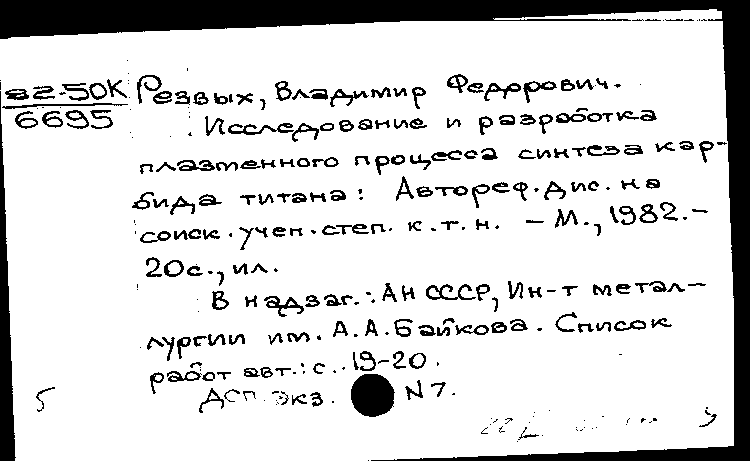 82-50К
6695
Резвых, Владимир Федорович.
Исследование и разработка
плазменного процесса синтеза кар-
бида титана: Автореф. дис. на
соиск. учен. степ. к. т. н. – М., 1982. –
20 с., ил.
В надзаг.: АН СССР, Ин-т метал-
лургии им. А. А. Байкова. Список
работ авт.: с. 19-20.
ДСП. Экз. N 7.
5